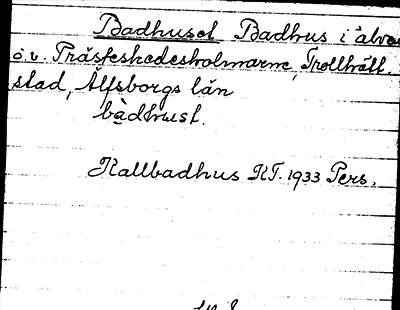 Badhuset Badhus i älven
ö.v. Prästeskedesholmarne, Trollhätt.
stad, Älfsborgs län
bàdhust.
Kallbadhus KT. 1933 Pers.